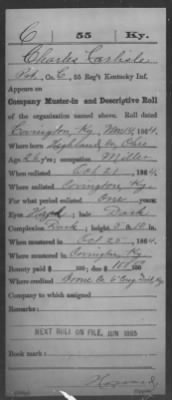 C | 55 | Ky.
Charles Carlisle
Pvt., Co. C, 55 Reg't Kentucky Inf.
Appears on
Company Muster-in and Descriptive Roll
of the organization named above. Roll dated
Covington, Ky. Nov 14, 1864.
Where born Highland Co. Ohio
Age 22 y'rs; occupation Miller
When enlisted Oct 21, 1864.
Where enlisted Covington, Ky.
For what period enlisted One years.
Eyes ; hair Dark
Complexion Dark; height 5 ft. 10 in.
When mustered in Oct 25, 1864.
Where mustered in Covington, Ky.
Bounty paid $ 100; due $ 100
Where credited Boone Co. 6" Cong. Dist. Ky
Company to which assigned
Remarks:
NEXT ROLL ON FILE, JUN 1865
Book mark: